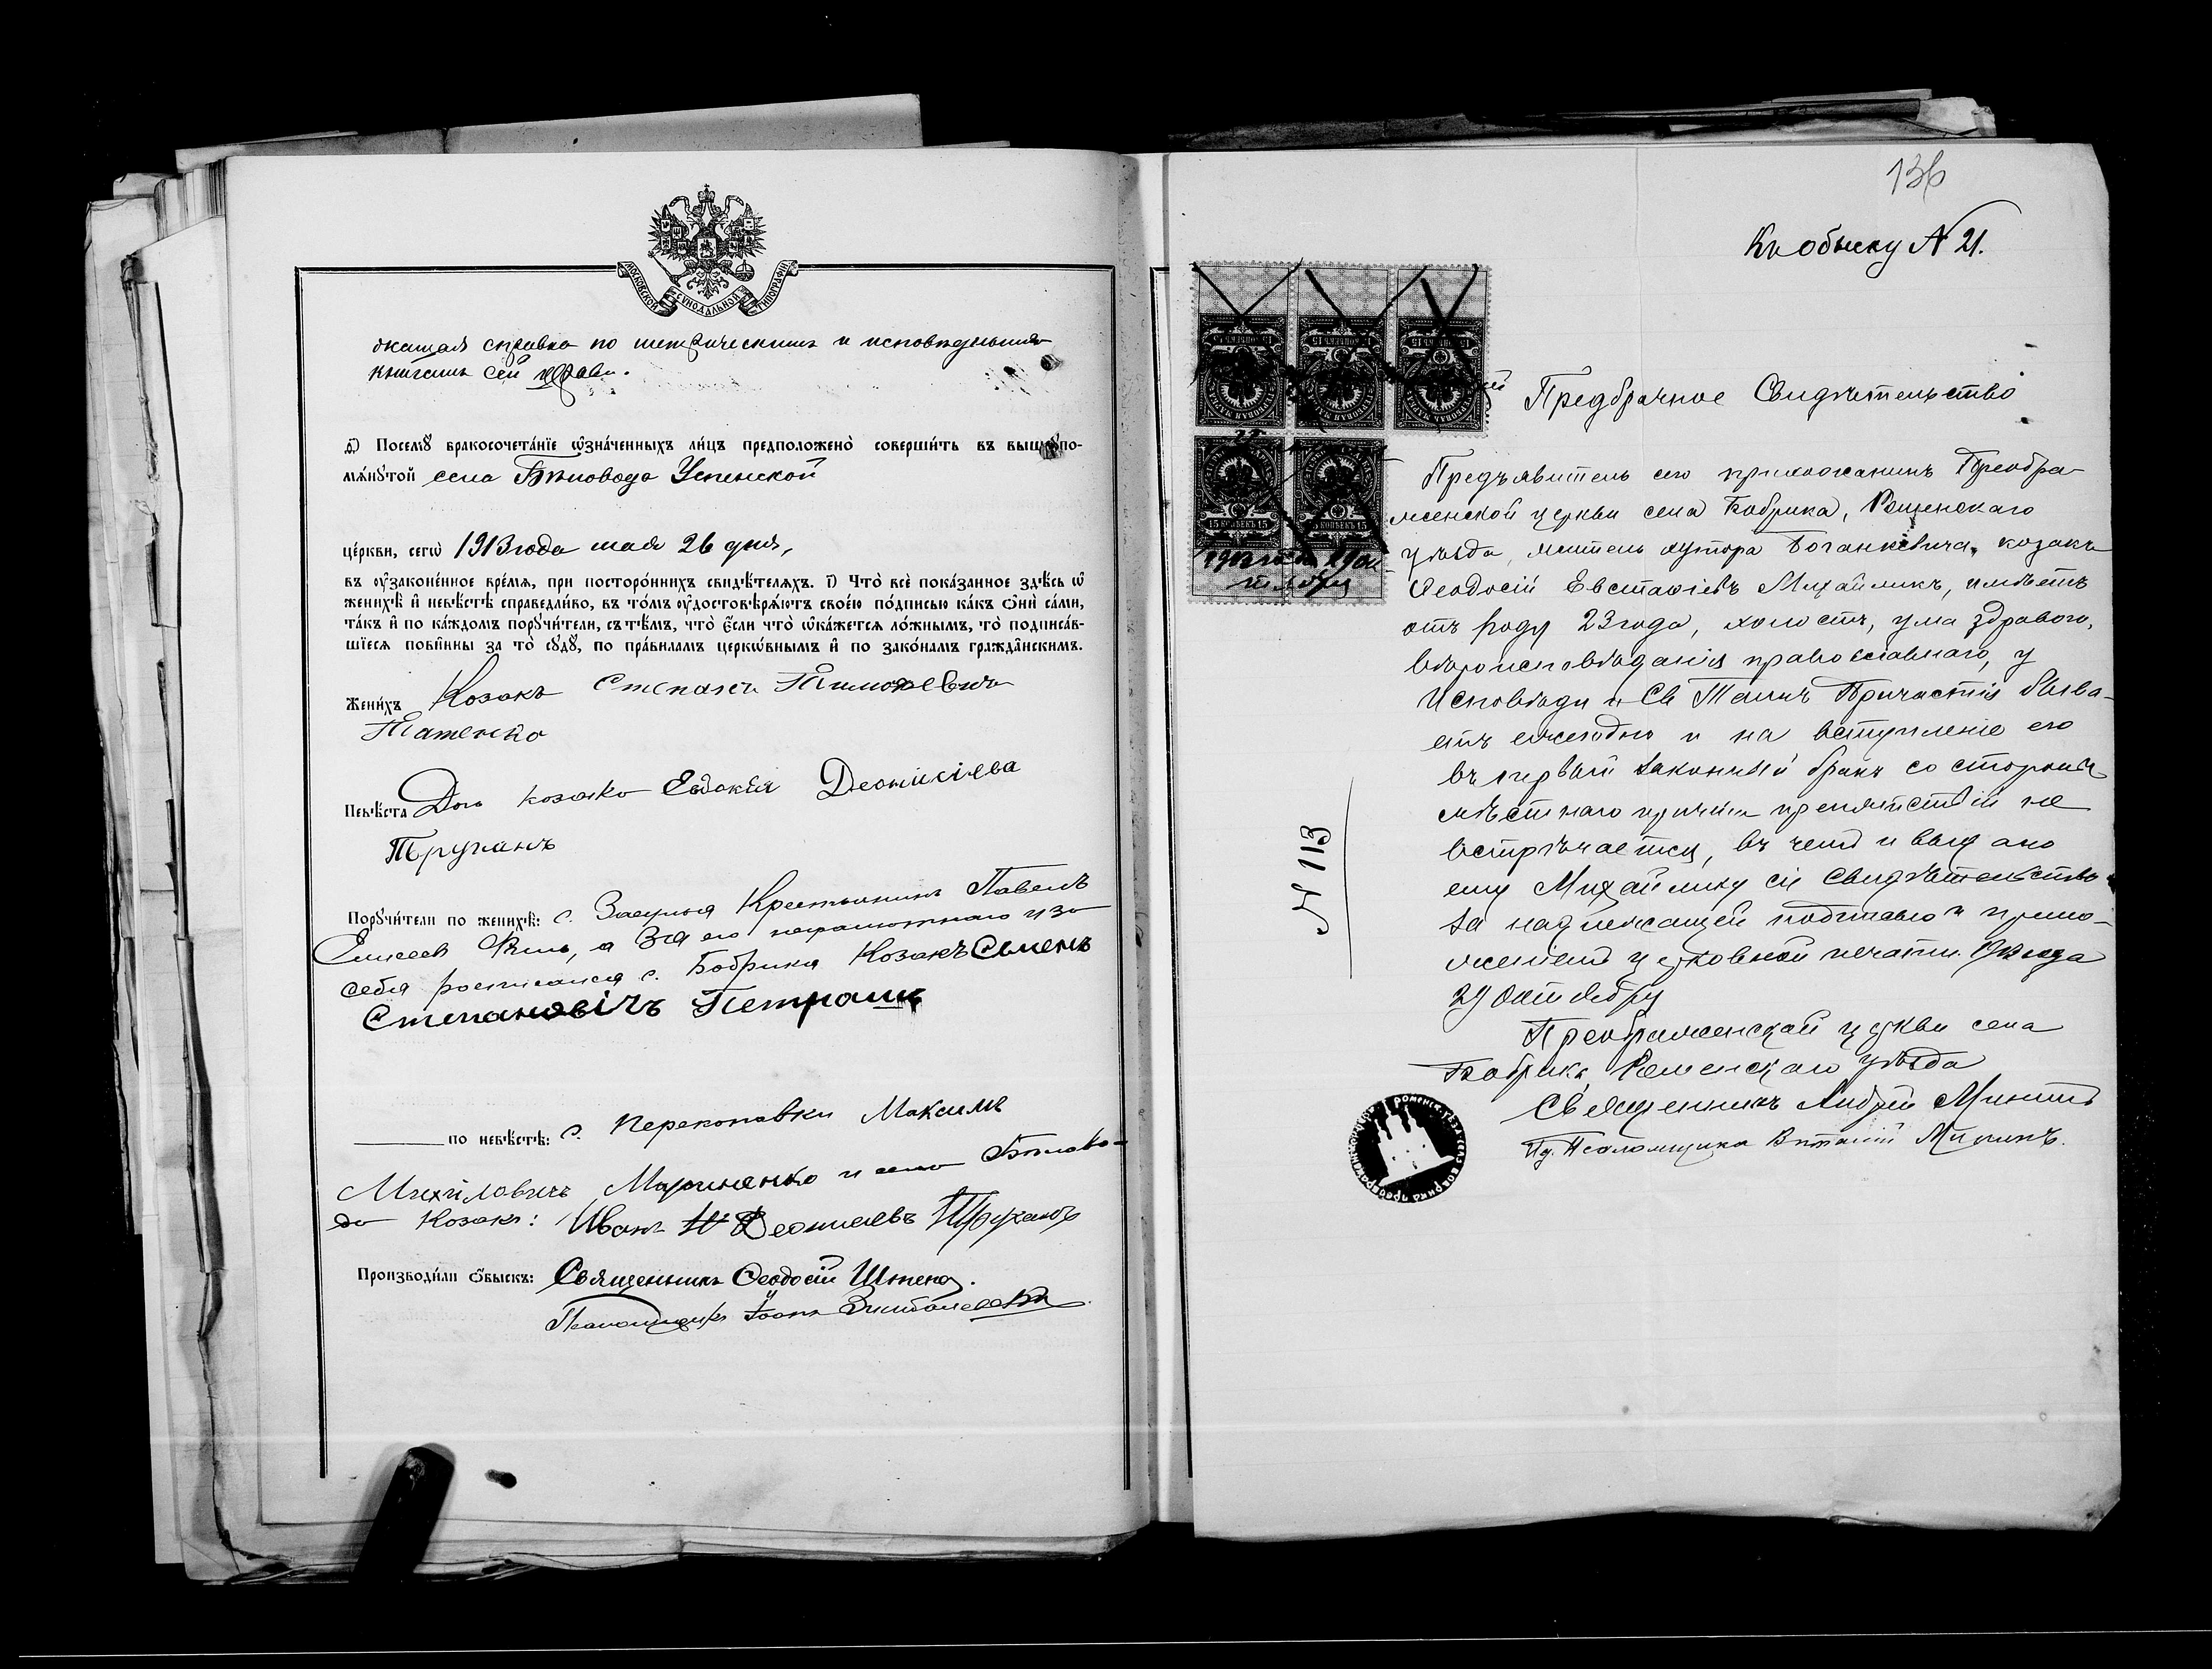 МОСКОВСКОЙ СѴНОДАЛЬНОЙ ТИПОГРАФІИ
справка по метрическимъ и исповѣднымъ
книгамъ сей церкви.
Посемꙋ̀ бракосочета́нїе ѡ҆зна́ченныхъ ли́цъ предположено̀ соверши́ть въ вышеꙋпо-
мѧ́нꙋтой села Бѣловода Успенской
це́ркви, сегѡ̀ 1913 года мая 26 дня,
въ ᲂу҆законе́нное вре́мѧ, при посторо́ннихъ свидѣ́телѧхъ. і҃) Что̀ всѐ пока́занное здѣ́сь ѡ҆
женихѣ̀ и҆ невѣ́стѣ справедли́во, въ то́мъ ᲂу҆достовѣрѧ́ютъ свое́ю по́дписью ка́къ ѻ҆нѝ са́ми,
та́къ и҆ по ка́ждомъ порꙋчи́тели, съ тѣ́мъ, что̀ є҆́сли что̀ ѡ҆ка́жетсѧ ло́жнымъ, то̀ подписа́в-
шїесѧ пови́нны за то̀ сꙋдꙋ̀, по пра́виламъ церко́внымъ и҆ по зако́намъ гражда́нскимъ.
Жени́хъ Козакъ Степанъ Тимофеевичъ
Татенко
Невѣ́ста Дочь козака Евдокія Деонисіева
Труханъ
Порꙋчи́тели по женихѣ̀: с. Засулья Крестьянинъ Павелъ
Елисеев а за его неграмотнаго и за
себя росписался с. Бобрика Козакъ Сменъ
Степановічъ Петраш
по невѣ́стѣ: с. Перекоповки Максимъ
Михйловичъ Мариненко и села Бѣлово-
да Козакъ: Иванъ Деонисіевъ Труханъ
Производи́ли ѻ҆́быскъ: Священникъ Ѳеодосій
Псаломщикъ Іоанъ
136
Къ обыску N 21.
Предбрачное Свидѣтельство
Предъявитель сего прихожанинъ Преобра-
женской церкви села Бобрика, Роменскаго
уѣзда, житель хутора Боганкевича, козакъ
Ѳеодосій Евстафіевъ Михайликъ, имѣетъ
отъ роду 23 года, холостъ, ума здраваго,
вѣроисповѣданія православнаго, у
Исповѣди и Св Таинъ Причастія быва-
етъ ежегодно и на вступленіе его
въ первый законный бракъ со стороны
мѣстнаго причта препятствій не
встрѣчается, въ чемъ и выдано
ему Михайлику сіе свидѣтельство
за надлежащей подписью и прило-
женіемъ церковной печати. 1913 года
29 Октября
Преображенской церкви села
Бобрика, Роменскаго уѣзда
Священникъ Андрей
Ид. Псаломщика Виталій
N 113
15 КОПѢЕКЪ 15
15 КОПѢЕКЪ 15